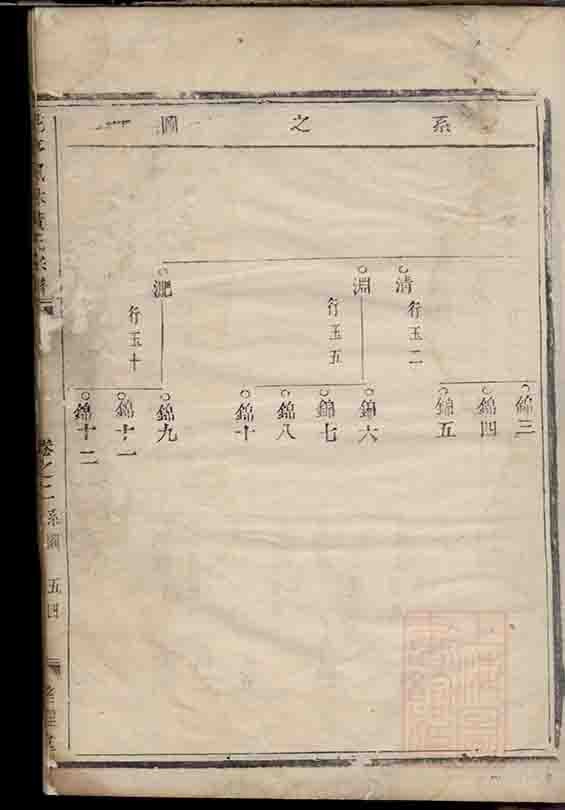 系之圖一
清
行玉二
淵
行玉五
淝
行玉十
錦三
錦四
錦五
錦六
錦七
錦八
錦十
錦九
錦十一
錦十二
卷之二
系圖
五四